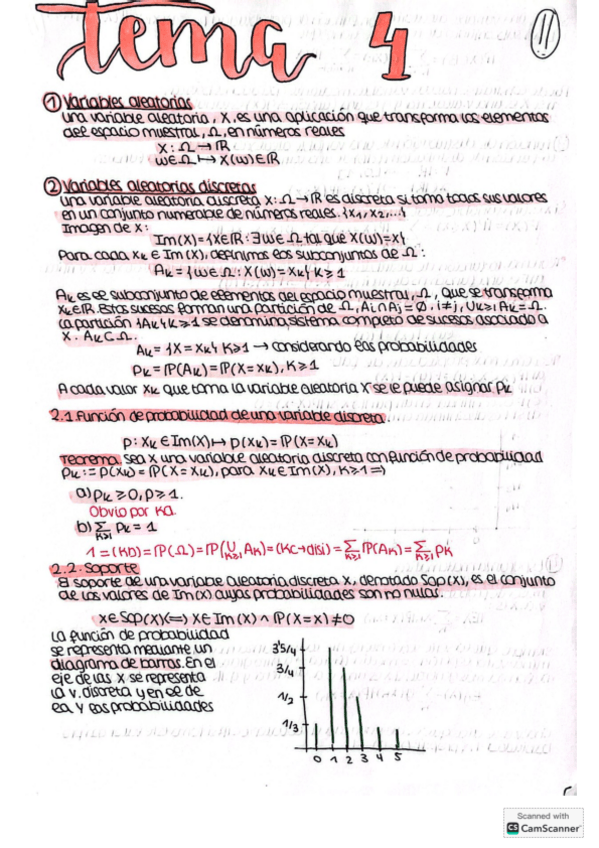 tema 4
11
① Variables aleatorias
Una variable aleatoria, X, es una aplicación que transforma los elementos
del espacio muestral, Ω, en números reales
X: Ω → ℝ
ω∈Ω ↦ X(ω)∈ℝ
② Variables aleatorias discretas
Una variable aleatoria discreta X: Ω→ℝ es discreta si toma todos sus valores
en un conjunto numerable de números reales. {x₁, x₂,...}
Imagen de X:
Im(X)={x∈ℝ: ∃ω∈Ω tal que X(ω)=x}
Para cada xₖ ∈ Im(X), definimos los subconjuntos de Ω:
Aₖ = {ω∈Ω: X(ω)=xₖ} k≥1
Aₖ es el subconjunto de elementos del espacio muestral, Ω, que se transforma
xₖ∈ℝ. Estos sucesos forman una partición de Ω, Ai∩Aj=Ø, i≠j, ∪ₖ≥₁Aₖ=Ω.
La partición {Aₖ} k≥1 se denomina sistema completo de sucesos asociado a
X. Aₖ⊂Ω.
Aₖ = {X=xₖ} k≥1 → considerando las probabilidades
Pₖ = ℙ(Aₖ)=ℙ(X=xₖ), k≥1
A cada valor xₖ que toma la variable aleatoria X se le puede asignar Pₖ
2.1. Función de probabilidad de una variable discreta.
p: xₖ∈Im(X)↦p(xₖ)=ℙ(X=xₖ)
Teorema: sea X una variable aleatoria discreta con función de probabilidad
Pₖ := p(xₖ) = ℙ(X=xₖ), para xₖ∈Im(X), k≥1 ⇒
a) pₖ ≥ 0, p≥1.
Obvio por Ka
b) ∑ₖ≥₁ pₖ = 1
1=(Kb)=ℙ(Ω)=ℙ(∪ₖ≥₁ Aₖ)=(Kc→disj)=∑ₖ≥₁ℙ(Aₖ)=∑ₖ≥₁ pₖ
2.2. Soporte
El soporte de una variable aleatoria discreta X, denotado Sop(X), es el conjunto
de los valores de Im(X) cuyas probabilidades son no nulas.
x∈Sop(X)⟺ x∈Im(X) ∧ ℙ(X=x)≠0
La función de probabilidad
se representa mediante un
diagrama de barras. En el
eje de las X se representa
la v. discreta y en el de
la Y las probabilidades
3'5/4
3/4
1/2
1/3
0 1 2 3 4 5
Scanned with
CS CamScanner